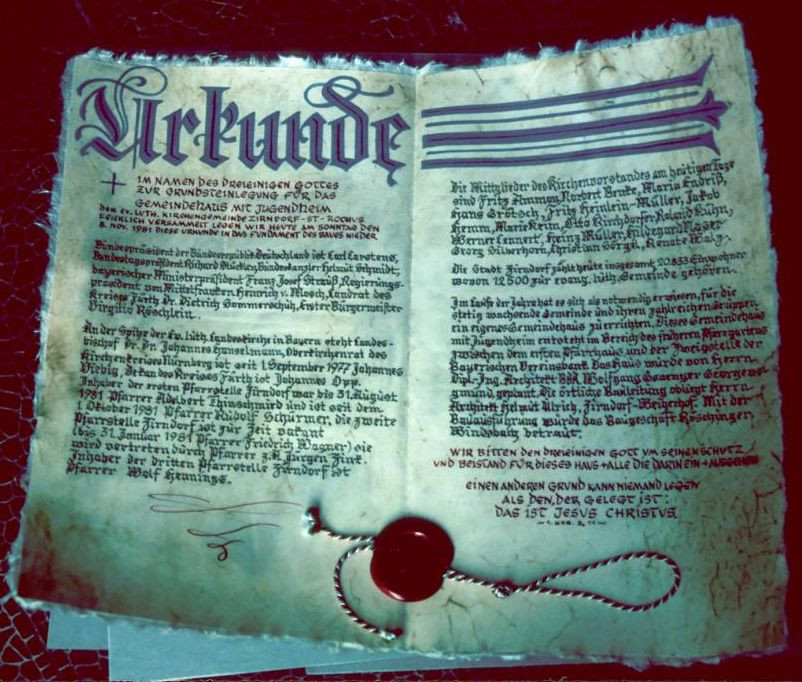 Urkunde
IM NAMEN DES DREIEINIGEN GOTTES
ZUR GRUNDSTEINLEGUNG FÜR DAS
GEMEINDEHAUS MIT JUGENDHEIM
DER EV. LUTH. KIRCHENGEMEINDE ZIRNDORF-ST. ROCHUS
FEIERLICH VERSAMMELT LEGEN WIR HEUTE AM SONNTAG DEN
8. NOV. 1981 DIESE URKUNDE IN DAS FUNDAMENT DES BAUES NIEDER
Bundespräsident der Bundesrepublik Deutschland ist Carl Carstens,
Bundestagspräsident Richard Stücklen, Bundeskanzler Helmut Schmidt,
bayerischer Ministerpräsident Franz Josef Strauß, Regierungs-
präsident von Mittelfranken Heinrich v. Mosch, Landrat des
Kreises Fürth Dr. Dietrich Sommerschuh, Erster Bürgermeister
Virgilio Röschlein.
An der Spitze der Ev. luth. Landeskirche in Bayern steht Landes-
bischof Dr. Dr. Johannes Hanselmann, Oberkirchenrat des
Kirchenkreises Nürnberg ist seit 1. September 1977 Johannes
Viebig, Dekan des Kreises Fürth ist Johannes Opp.
Inhaber der ersten Pfarrstelle Zirndorf war bis 31. August
1981 Pfarrer Adelbert Thinschmied und ist seit dem
1. Oktober 1981 Pfarrer Rudolf Schürmer, die zweite
Pfarrstelle Zirndorf ist zur Zeit vakant
(bis 31. Januar 1981 Pfarrer Friedrich Wagner) sie
wird vertreten durch Pfarrer z.A. Jürgen Zink.
Inhaber der dritten Pfarrstelle Zirndorf ist
Pfarrer Wolf Hennings.
Die Mittglieder des Kirchenvorstandes am heutigen Tage
sind Fritz Ammon, Norbert Benke, Maria Endriß,
Hans Grötsch, Fritz Heinlein-Müller, Jakob
Hemm, Marie Keim, Otto Kirchdorfer, Roland Kühn,
Werner Lennert, Heinz Müller, Hildegard
Georg Silberhorn, Christian Sörgel, Renate Walz.
Die Stadt Zirndorf zählt heute insgesamt 20.833 Einwohner
wovon 12500 zur evang. luth. Gemeinde gehören.
Im Laufe der Jahre hat es sich als notwendig erwiesen, für die
stetig wachsende Gemeinde und ihren zahlreichen Gruppen
ein eigenes Gemeindehaus zu errichten. Dieses Gemeindehaus
mit Jugendheim entsteht im Bereich des früheren Pfarrgartens
zwischen dem ersten Pfarrhaus und der Zweigstelle der
Bayerischen Vereinsbank. Das Haus wurde von Herrn
Dipl.-Ing. Architekt BDA Wolfgang Gsaenger Georgens-
gmünd, geplant. Die örtliche Bauleitung obliegt Herrn
Architekt Helmut Ulrich, Zirndorf-Weiherhof. Mit der
Bauausführung wurde das Baugeschäft Röschinger,
Windsbach betraut.
WIR BITTEN DEN DREIEINIGEN GOTT UM SEINEN SCHUTZ
UND BEISTAND FÜR DIESES HAUS + ALLE DIE DARIN EIN + AUSGEHEN
EINEN ANDEREN GRUND KANN NIEMAND LEGEN
ALS DEN, DER GELEGT IST:
DAS IST JESUS CHRISTUS
~ 1. KOR. 3, 11 ~